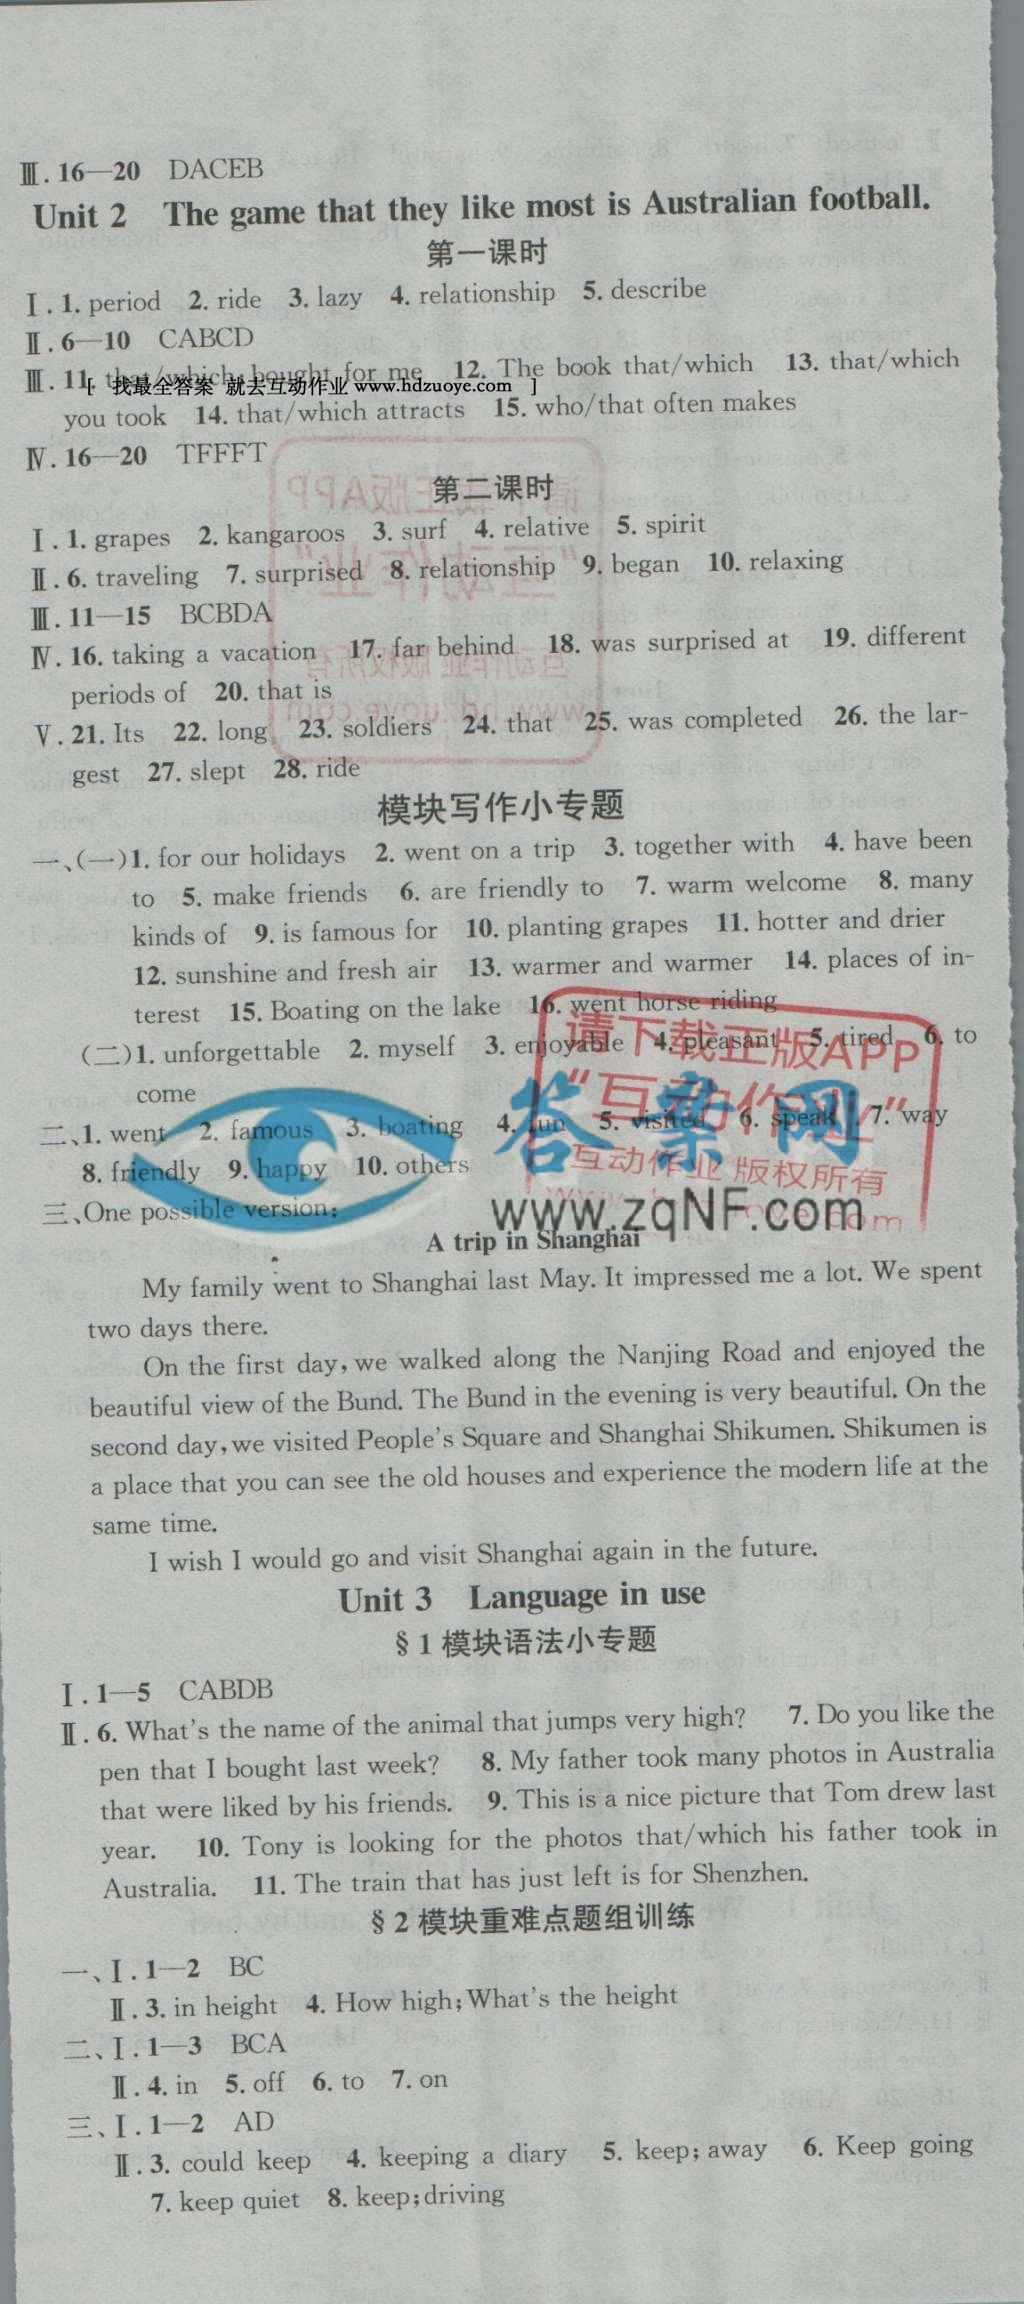 Ⅲ. 16—20 DACEB
Unit 2 The game that they like most is Australian football.
第一课时
Ⅰ. 1. period 2. ride 3. lazy 4. relationship 5. describe
Ⅱ. 6—10 CABCD
Ⅲ. 11. that/which; bought for me 12. The book that/which 13. that/which
[ 找最全答案 就去互动作业 www.hdzuoye.com ]
you took 14. that/which attracts 15. who/that often makes
Ⅳ. 16—20 TFFFT
第二课时
Ⅰ. 1. grapes 2. kangaroos 3. surf 4. relative 5. spirit
Ⅱ. 6. traveling 7. surprised 8. relationship 9. began 10. relaxing
Ⅲ. 11—15 BCBDA
Ⅳ. 16. taking a vacation 17. far behind 18. was surprised at 19. different
periods of 20. that is
Ⅴ. 21. Its 22. long 23. soldiers 24. that 25. was completed 26. the lar-
gest 27. slept 28. ride
模块写作小专题
一、(一)1. for our holidays 2. went on a trip 3. together with 4. have been
to 5. make friends 6. are friendly to 7. warm welcome 8. many
kinds of 9. is famous for 10. planting grapes 11. hotter and drier
12. sunshine and fresh air 13. warmer and warmer 14. places of in-
terest 15. Boating on the lake 16. went horse riding
(二)1. unforgettable 2. myself 3. enjoyable 4. pleasant 5. tired 6. to
come
请下载正版APP
"互动作业"
互动作业 版权所有
答案网
www.zqNF.com
二、1. went 2. famous 3. boating 4. fun 5. visited 6. speak 7. way
8. friendly 9. happy 10. others
三、One possible version:
A trip in Shanghai
My family went to Shanghai last May. It impressed me a lot. We spent
two days there.
On the first day, we walked along the Nanjing Road and enjoyed the
beautiful view of the Bund. The Bund in the evening is very beautiful. On the
second day, we visited People's Square and Shanghai Shikumen. Shikumen is
a place that you can see the old houses and experience the modern life at the
same time.
I wish I would go and visit Shanghai again in the future.
Unit 3 Language in use
§1模块语法小专题
Ⅰ. 1—5 CABDB
Ⅱ. 6. What's the name of the animal that jumps very high? 7. Do you like the
pen that I bought last week? 8. My father took many photos in Australia
that were liked by his friends. 9. This is a nice picture that Tom drew last
year. 10. Tony is looking for the photos that/which his father took in
Australia. 11. The train that has just left is for Shenzhen.
§2模块重难点题组训练
一、Ⅰ. 1—2 BC
Ⅱ. 3. in height 4. How high; What's the height
二、Ⅰ. 1—3 BCA
Ⅱ. 4. in 5. off 6. to 7. on
三、Ⅰ. 1—2 AD
Ⅱ. 3. could keep 4. keeping a diary 5. keep; away 6. Keep going
7. keep quiet 8. keep; driving